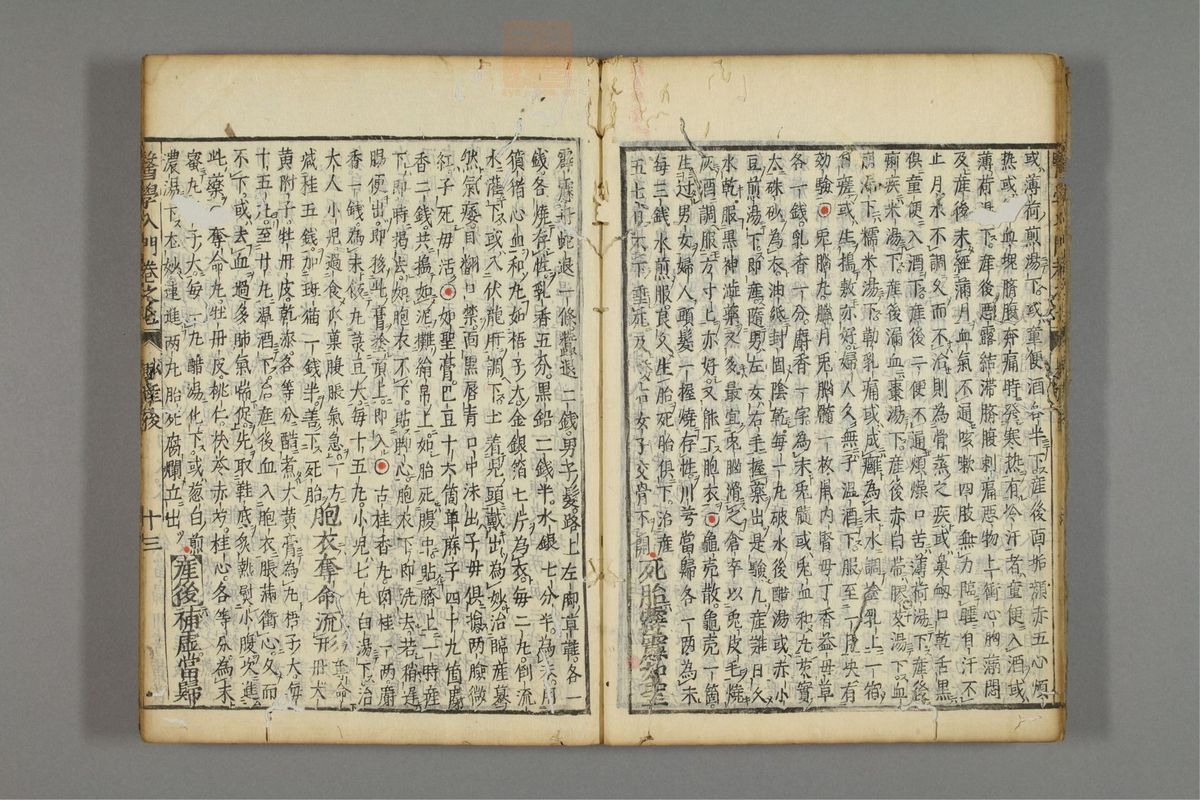 或薄荷煎湯下或童便酒各半下産後面垢顔赤五心煩
熱或血塊臍腹奔痛時發寒熱有冷汗者童便入酒或
薄荷湯下産後惡露結滯臍腹刺痛惡物上衝心胸滿悶
及産後未經滿月血氣不通咳嗽四肢無力臨睡自汗不
止月水不調久而不治則為骨蒸之疾或鼻衂口乾舌黑
俱童便入酒下産後二便不通煩燥口苦薄荷湯下産後
痢疾米湯下産後漏血棗湯下産後赤白帶膠艾湯下血
崩漏下糯米湯下勒乳痛或成癰為末水調塗乳上一宿
自瘥或生搗敷亦好婦人久無子温酒下服至一月决有
効驗兎腦丸臘月兎腦髓一枚鼠内腎母丁香益母草
各一錢乳香一分麝香一字為末兎髓或兎血和丸芡實
大硃砂為衣油紙封固陰乾每一丸破水後醋湯或赤小
豆煎湯下即産隨男左女右手握藥出是驗凡産難日久
水乾服黒神滋藥又多最宜兎腦滑之倉卒以兎皮毛燒
灰酒調服方寸上亦好又能下胞衣龜売散龜売一箇
生过男女婦人頭髮一握燒存性川芎當歸各一両為末
每三錢水煎服良久生胎死胎俱下治産
五七日不下垂死及矮石女子交骨不開死胎霹靂知聖
霹靂丹蛇退一條蠶退二錢男子髮路上左脚草鞋各一
錢各燒存性乳香五分黒鉛二錢半水銀七分半為末用
獖猪心血和丸如梧子大金銀箔七片為衣每二丸倒流
水灌下或入伏龍肝調下土着兒頭戴出為妙治臨産驀
然氣痿目翻口禁面黒唇青口中沫出子母俱損両臉微
紅子死母活如聖膏巴豆十六箇蓖麻子四十九箇麝
香二錢共搗如泥攤絹帛上如胎死腹中貼臍上一時産
下即時揭去如胞衣不下貼脚心胞衣下即洗去若稍遲
腸便出即後此膏塗頂上即入古桂香丸肉桂一両麝
香一錢為末飯丸菉豆大每十五丸小兒七丸白湯下治
大人小兒過食瓜菓腹脹氣急一方
減桂五錢加斑猫一錢半善下死胎胞衣奪命沉形
黄附子牡丹皮乾漆各等分醋煮大黄膏為丸梧子大每
十五丸至廿丸温酒下治産後血入胞衣脹滿衝心久而
不下或去血過多肺氣喘促先取鞋底炙熱熨小腹次進
此藥奪命丸牡丹皮桃仁茯苓赤芍桂心各等分為末
蜜丸子大每一丸醋湯化下或葱白煎
濃湯下尤妙連進両九胎死腐爛立出産後補虚當歸
醫學入門卷之
産後
十三